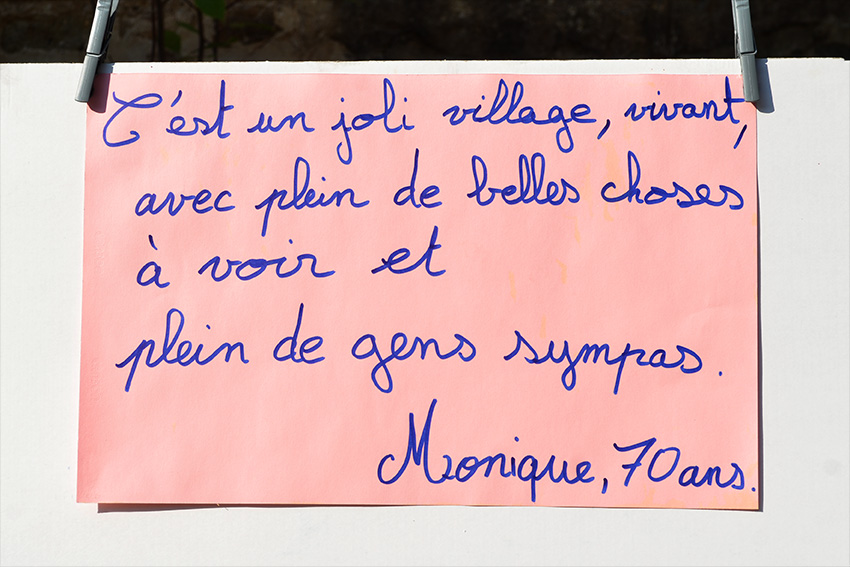 C'est un joli village, vivant,
avec plein de belles choses
à voir et
plein de gens sympas.
Monique, 70 ans.